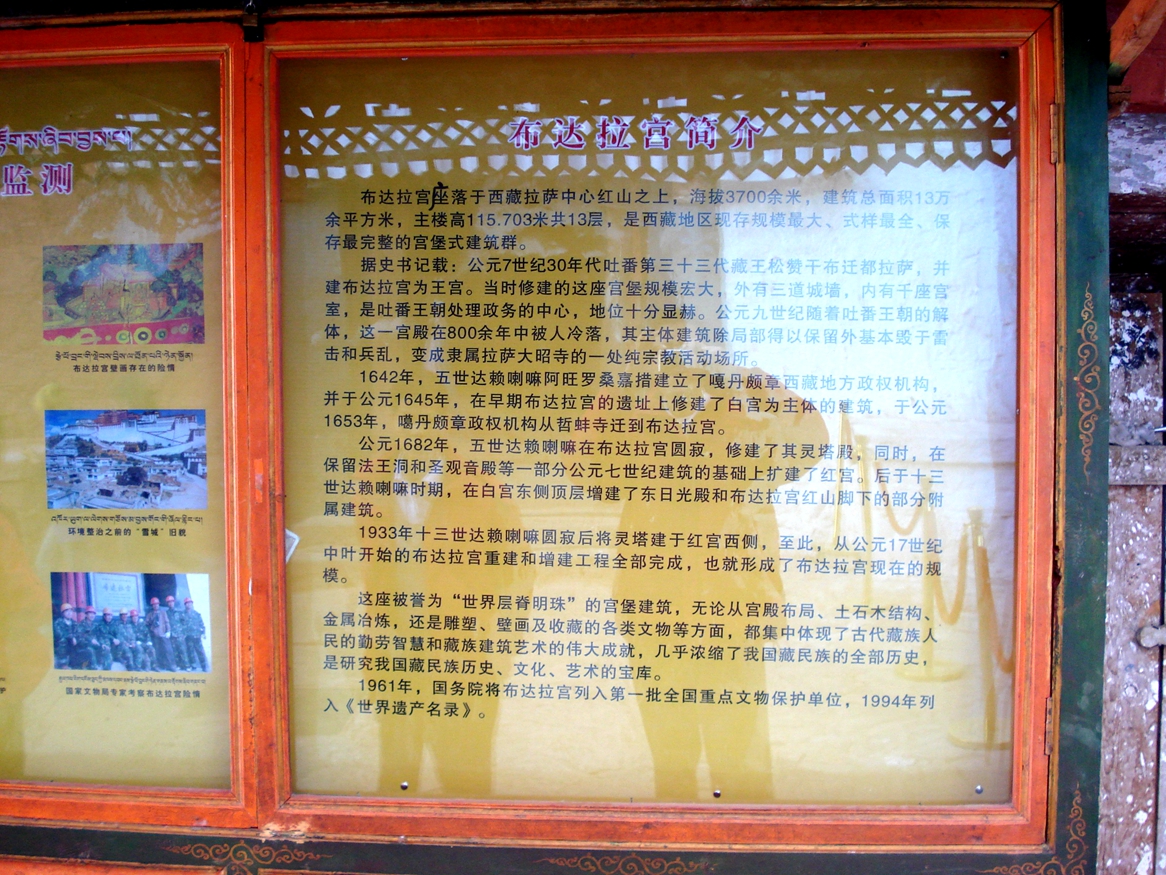 监测
布达拉宫壁画存在的险情
环境整治之前的“雪城”旧貌
国家文物局专家考察布达拉宫险情
布达拉宫简介
布达拉宫座落于西藏拉萨中心红山之上，海拔3700余米，建筑总面积13万
余平方米，主楼高115.703米共13层，是西藏地区现存规模最大、式样最全、保
存最完整的宫堡式建筑群。
据史书记载：公元7世纪30年代吐番第三十三代藏王松赞干布迁都拉萨，并
建布达拉宫为王宫。当时修建的这座宫堡规模宏大，外有三道城墙，内有千座宫
室，是吐番王朝处理政务的中心，地位十分显赫。公元九世纪随着吐番王朝的解
体，这一宫殿在800余年中被人冷落，其主体建筑除局部得以保留外基本毁于雷
击和兵乱，变成隶属拉萨大昭寺的一处纯宗教活动场所。
1642年，五世达赖喇嘛阿旺罗桑嘉措建立了嘎丹颇章西藏地方政权机构，
并于公元1645年，在早期布达拉宫的遗址上修建了白宫为主体的建筑，于公元
1653年，噶丹颇章政权机构从哲蚌寺迁到布达拉宫。
公元1682年，五世达赖喇嘛在布达拉宫圆寂，修建了其灵塔殿，同时，在
保留法王洞和圣观音殿等一部分公元七世纪建筑的基础上扩建了红宫。后于十三
世达赖喇嘛时期，在白宫东侧顶层增建了东日光殿和布达拉宫红山脚下的部分附
属建筑。
1933年十三世达赖喇嘛圆寂后将灵塔建于红宫西侧，至此，从公元17世纪
中叶开始的布达拉宫重建和增建工程全部完成，也就形成了布达拉宫现在的规
模。
这座被誉为“世界层脊明珠”的宫堡建筑，无论从宫殿布局、土石木结构、
金属冶炼，还是雕塑、壁画及收藏的各类文物等方面，都集中体现了古代藏族人
民的勤劳智慧和藏族建筑艺术的伟大成就，几乎浓缩了我国藏民族的全部历史，
是研究我国藏民族历史、文化、艺术的宝库。
1961年，国务院将布达拉宫列入第一批全国重点文物保护单位，1994年列
入《世界遗产名录》。